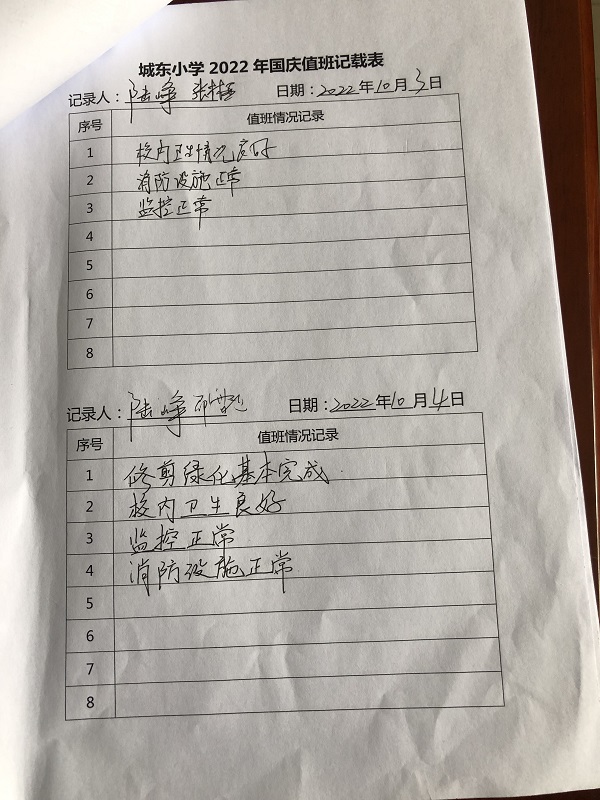 城东小学2022年国庆值班记载表
记录人：陆峰 日期：2022年10月3日
序号 值班情况记录
1 校内卫生情况良好
2 消防设施正常
3 监控正常
4
5
6
7
8
记录人：陆峰 日期：2022年10月4日
序号 值班情况记录
1 修剪绿化基本完成
2 校内卫生良好
3 监控正常
4 消防设施正常
5
6
7
8